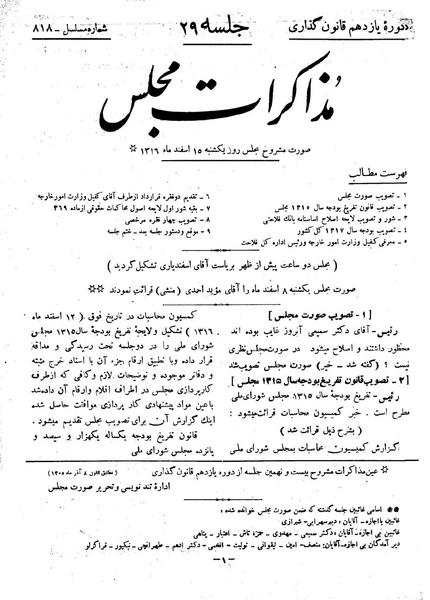 دورهٔ یازدهم قانون گذاری
جلسه ۲۹
شماره مسلسل - ۸۱۸
مذاکرات مجلس
صورت مشروح مجلس روز یکشنبه ۱۵ اسفند ماه ۱۳۱۶ ☆
فهرست مطالب
۱ - تصویب صورت مجلس
۲ - تصویب قانون تفریغ بودجه سال ۱۳۱۵ مجلس
۳ - شور و تصویب لایحه اصلاح اساسنامه بانک فلاحتی
۴ - تصویب بودجه سال ۱۳۱۷ کل کشور
۵ - معرفی کفیل وزارت امور خارجه ورئیس اداره کل فلاحت
۶ - تقدیم دوفقره قرارداد ازطرف آقای کفیل وزارت امورخارجه
۷ - بقیه شور اول لایحه اصول محاکمات حقوقی ازماده ۳۶۹
۸ - تصویب چهار فقره مرخصی
۹ - موقع ودستور جلسه بعد - ختم جلسه
( مجلس دو ساعت پیش از ظهر بریاست آقای اسفندیاری تشکیل گردید )
صورت مجلس یکشنبه ۸ اسفند ماه را آقای مؤید احمدی (منشی) قرائت نمودند ☆☆
[ ۱ - تصویب صورت مجلس ]
رئیس - آقای دکتر سمیعی آنروز غایب بوده اند
محظور داشتند و اصلاح میشود . در صورت‌مجلس‌نظری
نیست ؟ (گفته شد - خیر) صورت مجلس تصویب‌شد
[ ۲ - تصویب قانون تفریغ‌بودجه‌سال ۱۳۱۵ مجلس ]
رئیس - تفریغ بودجه سال ۱۳۱۵ مجلس شورای‌ملی
مطرح است . خبر کمیسیون محاسبات قرائت‌میشود :
( بشرح ذیل قرائت شد )
گزارش کمیسیون محاسبات بمجلس شورای ملی
کمیسیون محاسبات در تاریخ فوق ( ۱۲ اسفند ماه
۱۳۱۶ ) تشکیل ولایحهٔ تفریغ بودجهٔ سال۱۳۱۵ مجلس
شورای ملی را در دوجلسه تحت رسیدگی و مداقه
قرار داده وبا تطبیق ارقام جزء آن با اسناد خرج مثبته
و دفاتر موجوده و توضیحات لازم وکافی که ازطرف
کارپردازی مجلس در اطراف اقلام وارقام آن داده‌شد
باعین مواد پیشنهادی کار پردازی موافقت حاصل شده
اینک گزارش آن برای تصویب مجلس تقدیم میشود .
قانون تفریغ بودجه یکساله یکهزار و سیصد و
پانزده مجلس شورای ملی
☆ عین مذاکرات مشروح بیست و نهمین جلسه از دوره یازدهم قانون گذاری
(مطابق قانون ۸ آذر ماه ۱۳۰۵)
ادارهٔ تند نویسی و تحریر صورت مجلس
☆☆ اسامی غائبین جلسه گذشته که ضمن صورت مجلس خوانده شده :
غائبین بااجازه - آقایان : دبیرسهرابی - شیرازی
غائبین بی اجازه - آقایان : دکتر سمیعی - مهدوی - حمزه تاش - اعتبار - پناهی
- ۱ -